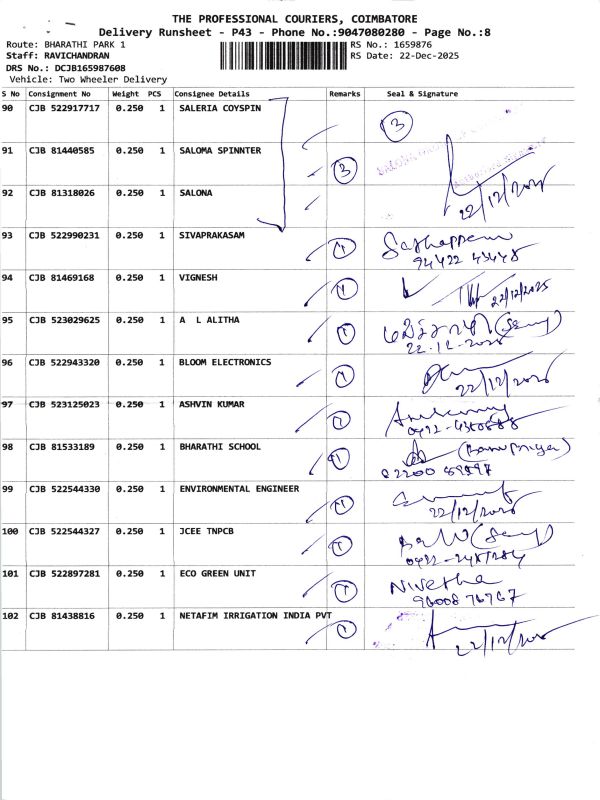 THE PROFESSIONAL COURIERS, COIMBATORE
Delivery Runsheet - P43 - Phone No.:9047080280 - Page No.:8
Route: BHARATHI PARK 1 RS No.: 1659876
Staff: RAVICHANDRAN RS Date: 22-Dec-2025
DRS No.: DCJB165987608
Vehicle: Two Wheeler Delivery
S No Consignment No Weight PCS Consignee Details Remarks Seal & Signature
90 CJB 522917717 0.250 1 SALERIA COYSPIN
3
91 CJB 81440585 0.250 1 SALOMA SPINNTER 3
92 CJB 81318026 0.250 1 SALONA
22/12/2025
93 CJB 522990231 0.250 1 SIVAPRAKASAM 1
94422 43448
94 CJB 81469168 0.250 1 VIGNESH 1 22/12/2025
95 CJB 523029625 0.250 1 A L ALITHA 1
22-12-2025
96 CJB 522943320 0.250 1 BLOOM ELECTRONICS 1
22/12/2025
97 CJB 523125023 0.250 1 ASHVIN KUMAR 1
98 CJB 81533189 0.250 1 BHARATHI SCHOOL 1 (Banupriya)
99 CJB 522544330 0.250 1 ENVIRONMENTAL ENGINEER 1
22/12/2025
100 CJB 522544327 0.250 1 JCEE TNPCB 1
101 CJB 522897281 0.250 1 ECO GREEN UNIT 1 Nivetha
96008 76767
102 CJB 81438816 0.250 1 NETAFIM IRRIGATION INDIA PVT 1
22/12/2025